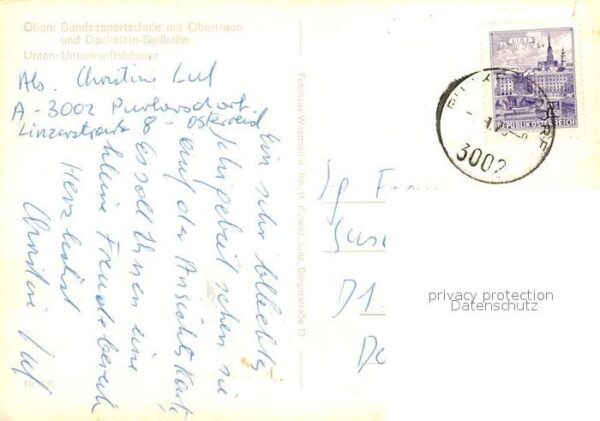 Oben: Bundessportschule mit Obertraun
und Dachstein-Seilbahn
Unten: Unterkunftshäuser
Abs. Christine
A-3002 Purkersdorf
Linzerstraße 8 - Österreich
Ein sehr beliebtes
Schigebiet sehen sie
auf der Ansichtskarte
Es soll Ihnen eine
kleine Freude bereiten
Herzlichst
Christine
Fotohaus
Inh. H.
Linz, Bürgerstraße 12
LINZ
REPUBLIK ÖSTERREICH
3002
D1
privacy protection
Datenschutz